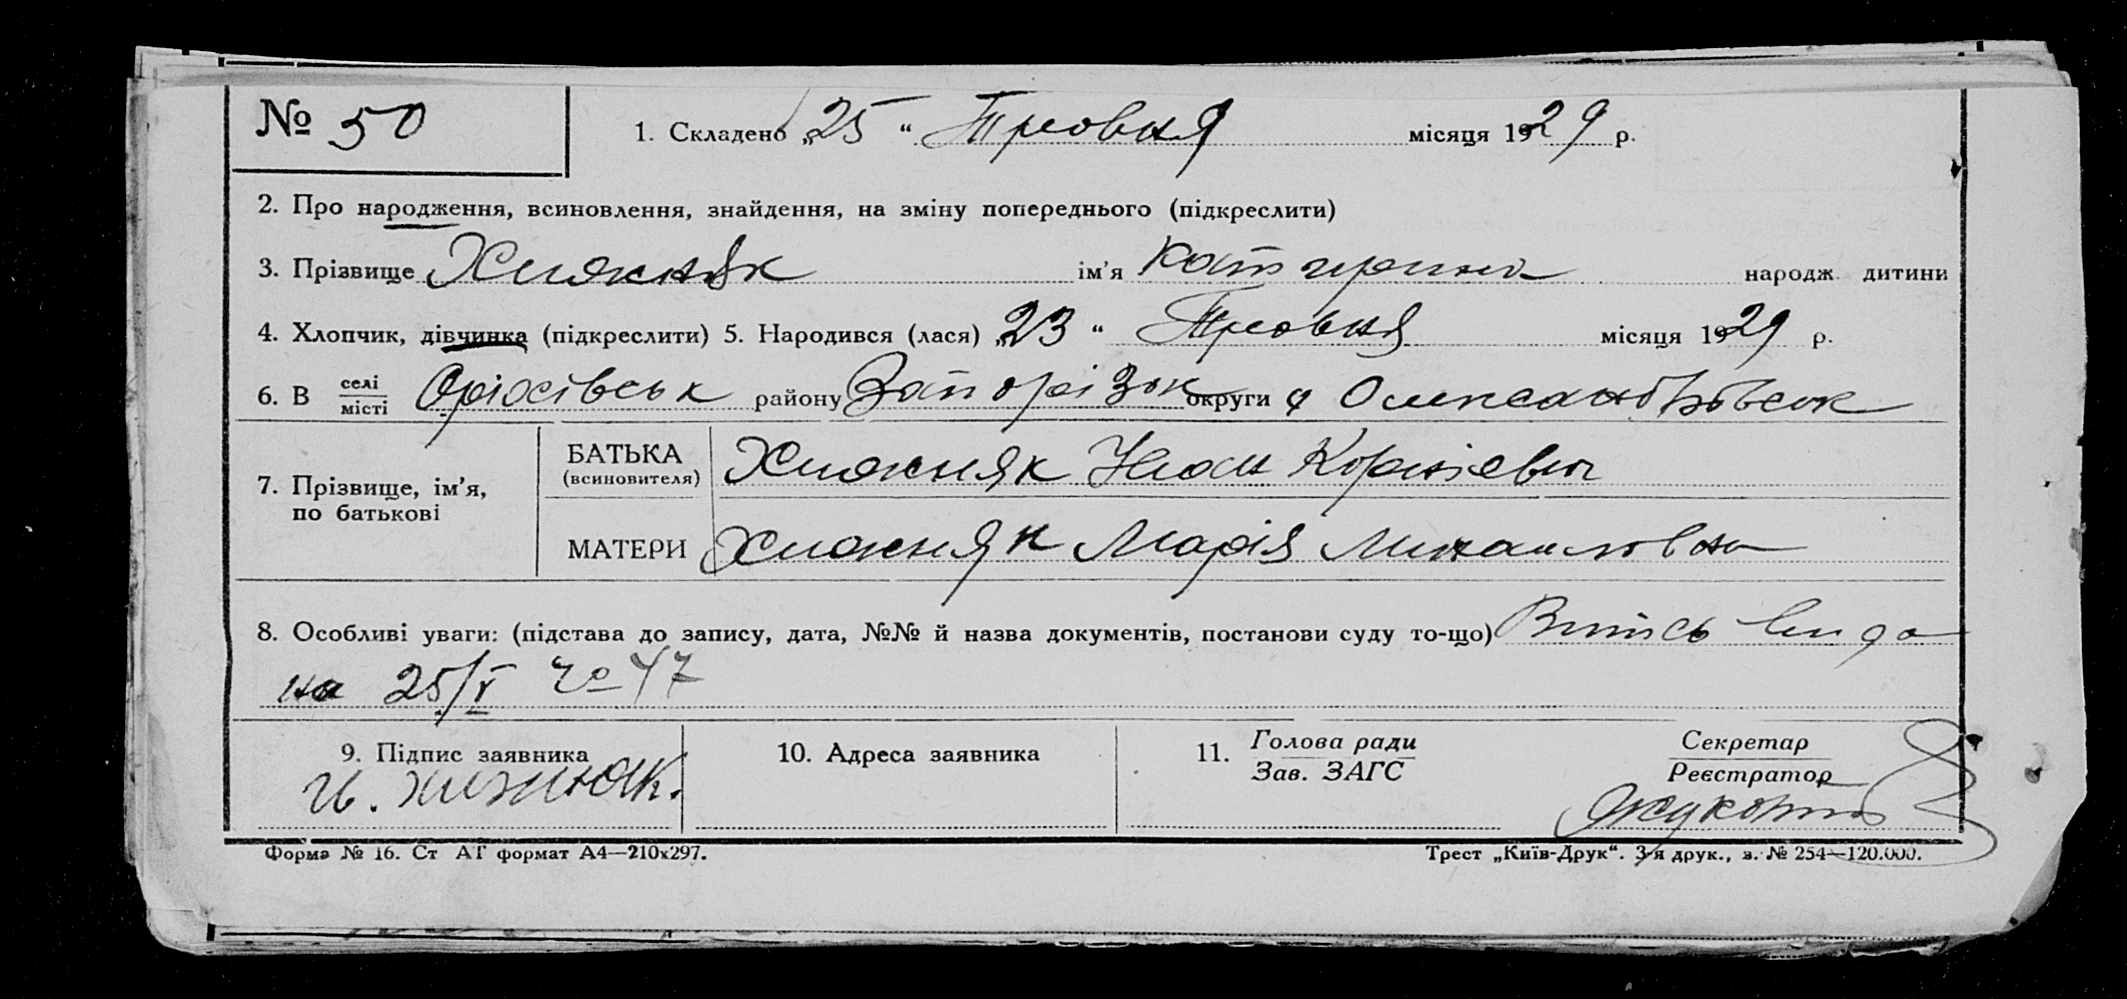 № 50 1. Складено „25“ Тровня місяця 1929 р.
2. Про народження, всиновлення, знайдення, на зміну попереднього (підкреслити)
3. Прізвище Хижняк ім'я Катерина народж. дитини
4. Хлопчик, дівчинка (підкреслити) 5. Народився (лася) „23“ Тровня місяця 1929 р.
6. В селі/місті Оріхівськ району Запорізьк округи
7. Прізвище, ім'я, по батькові
БАТЬКА (всиновителя) Хижняк Іван
МАТЕРИ Хижняк Марія Михаиловна
8. Особливі уваги: (підстава до запису, дата, №№ й назва документів, постанови суду то-що)
на 25/V № 47
9. Підпис заявника 10. Адреса заявника 11. Голова ради Секретар
Зав. ЗАГС Реєстратор
И. Хижняк.
Форма № 16. Ст АІ формат А4—210х297. Трест „Київ-Друк“. 3-я друк., з. № 254—120.000.